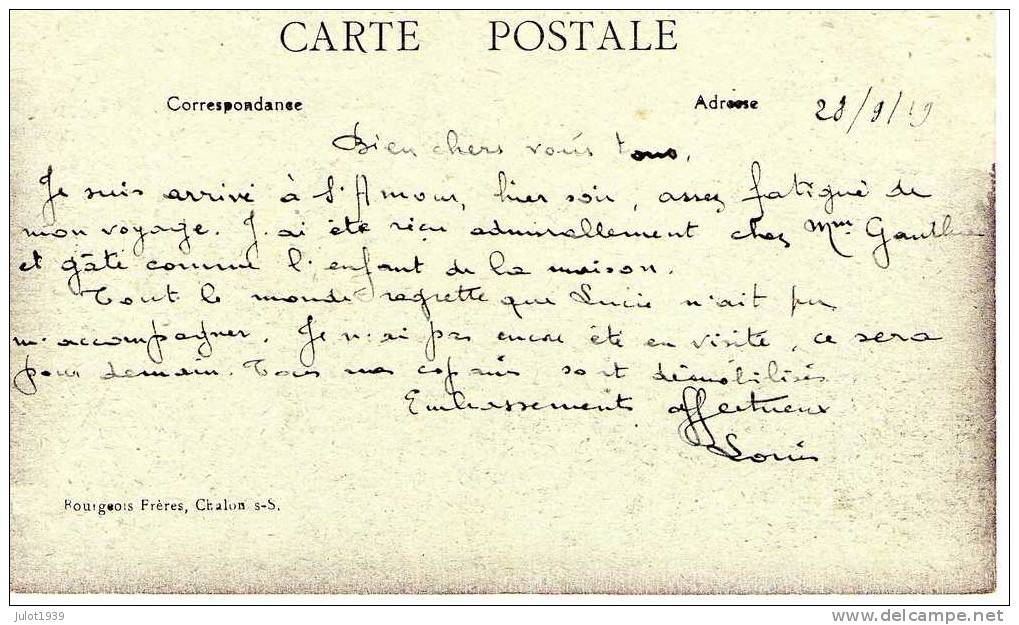 CARTE POSTALE
Correspondance
Adresse
28/9/19
Bien chers vous tous,
Je suis arrivé à St Amour, hier soir, assez fatigué de
mon voyage. J'ai été reçu admirablement chez Mme
et gâté comme l'enfant de la maison.
Tout le monde regrette que Lucie n'ait pu
m'accompagner. Je n'ai pas encore été en visite, ce sera
pour demain. Tous mes copains sont démobilisés
Embrassements affectueux
Louis
Bourgeois Frères, Chalon s-S.
julot1939
delcampe.net